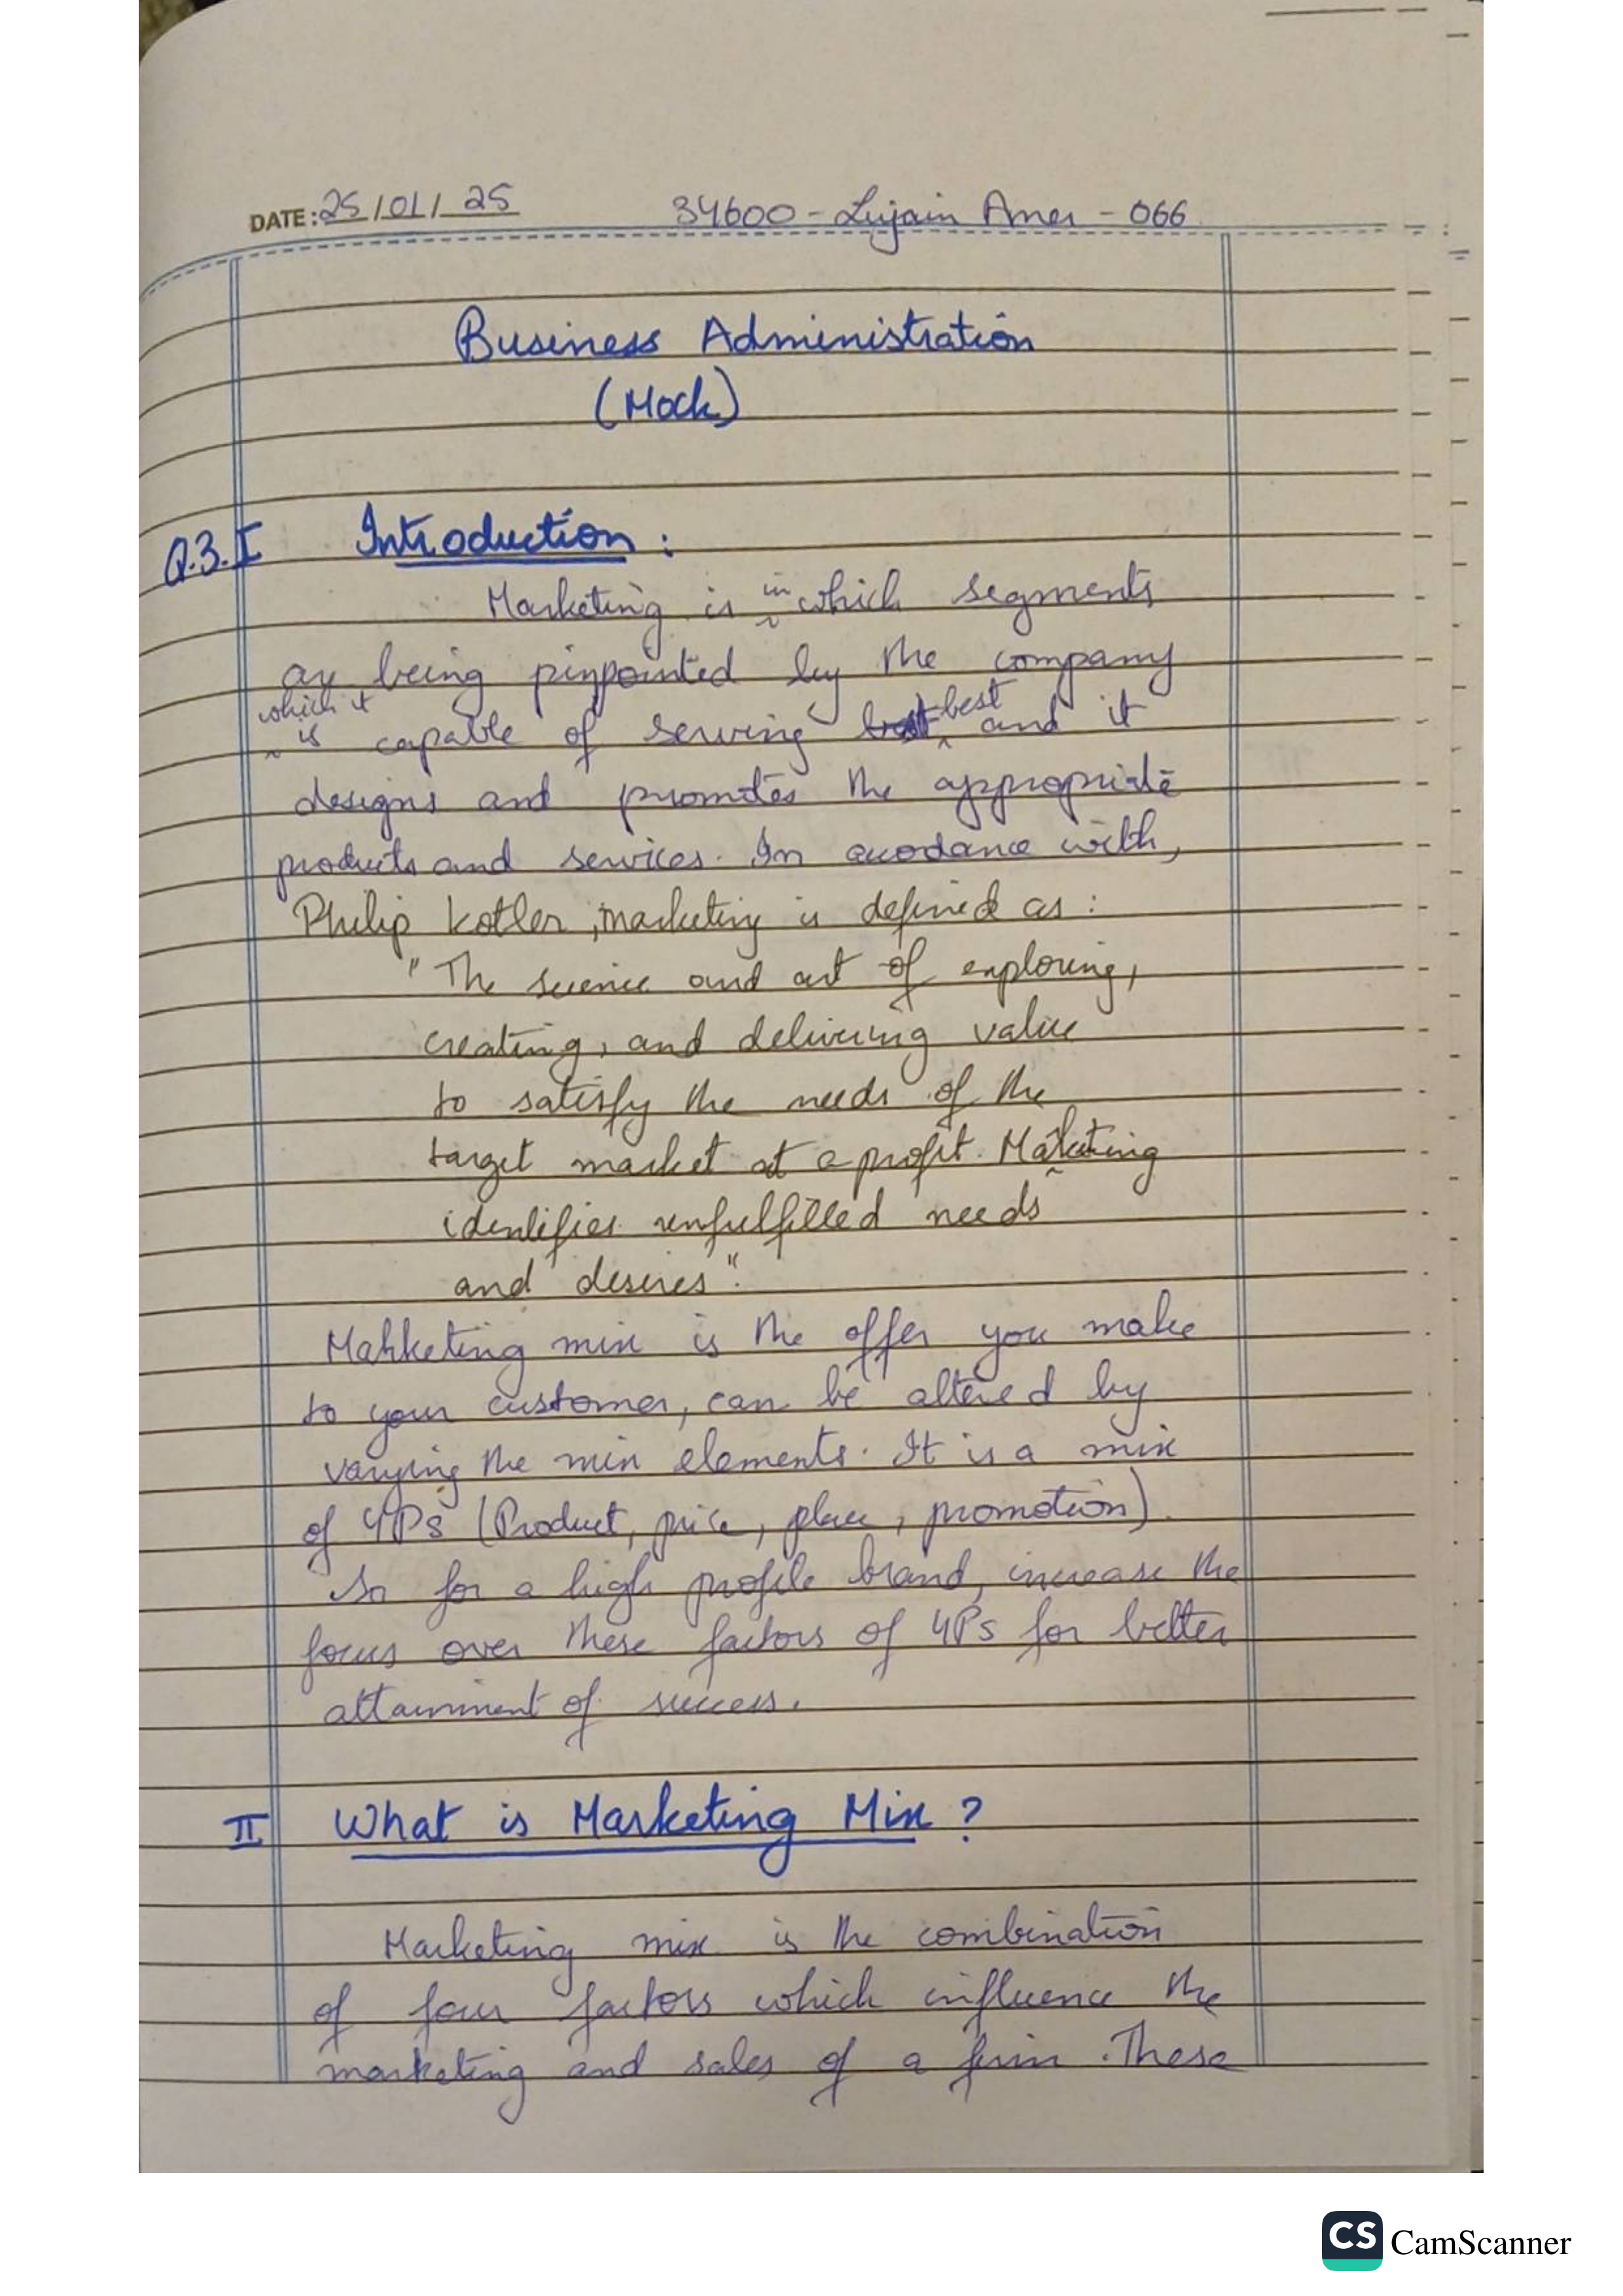 DATE: 25/01/25
34600 - Lujain Amer - 066
Business Administration
(Mock)
Q.3. I Introduction:
Marketing is in which segments
are being pinpointed by the company
which it is capable of serving best and it
designs and promotes the appropriate
products and services. In accordance with,
Philip Kotler, marketing is defined as:
"The science and art of exploring,
creating, and delivering value
to satisfy the needs of the
target market at a profit. Marketing
identifies unfulfilled needs
and desires".
Mahketing mix is the offer you make
to your customer, can be altered by
varying the mix elements. It is a mix
of 4Ps (Product, price, place, promotion).
So for a high profile brand, increase the
focus over these factors of 4Ps for better
attainment of success.
II What is Marketing Mix?
Marketing mix is the combination
of four factors which influence the
marketing and sales of a firm. These
CS CamScanner